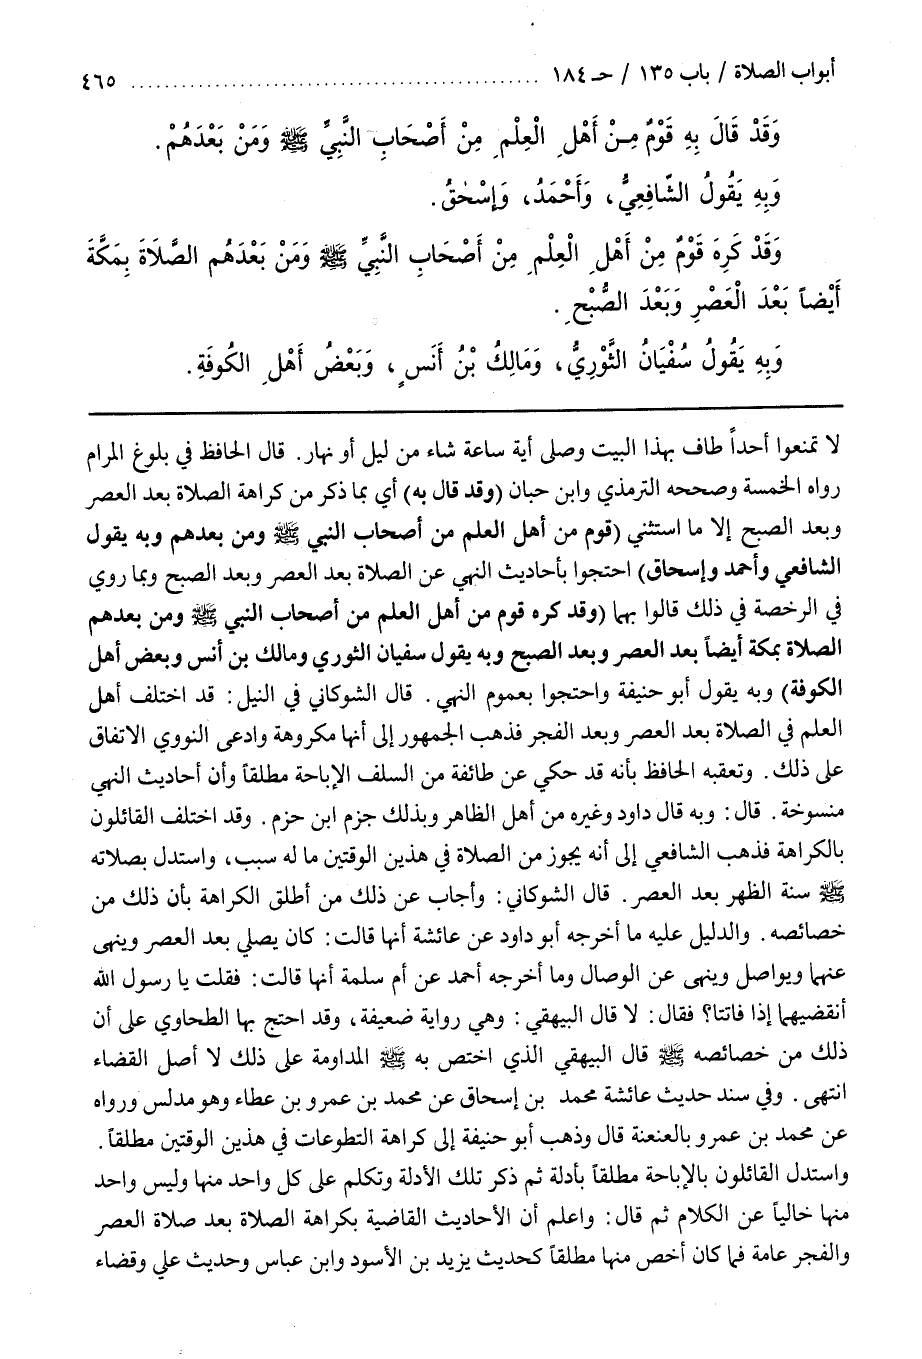 أبواب الصلاة / باب ١٣٥ / حـ ١٨٤ ........................................ ٤٦٥
وَقَدْ قَالَ بِهِ قَوْمٌ مِنْ أَهْلِ الْعِلْمِ مِنْ أَصْحَابِ النَّبِيِّ ﷺ وَمَنْ بَعْدَهُمْ.
وَبِهِ يَقُولُ الشَّافِعِيُّ، وَأَحْمَدُ، وَإِسْحٰقُ.
وَقَدْ كَرِهَ قَوْمٌ مِنْ أَهْلِ الْعِلْمِ مِنْ أَصْحَابِ النَّبِيِّ ﷺ وَمَنْ بَعْدَهُم الصَّلَاةَ بِمَكَّةَ
أَيْضاً بَعْدَ الْعَصْرِ وَبَعْدَ الصُّبْحِ.
وَبِهِ يَقُولُ سُفْيَانُ الثَّوْرِيُّ، وَمَالِكُ بْنُ أَنَسٍ، وَبَعْضُ أَهْلِ الكُوفَةِ.
لا تمنعوا أحداً طاف بهذا البيت وصلى أية ساعة شاء من ليل أو نهار. قال الحافظ في بلوغ المرام
رواه الخمسة وصححه الترمذي وابن حبان (وقد قال به) أي بما ذكر من كراهة الصلاة بعد العصر
وبعد الصبح إلا ما استثني (قوم من أهل العلم من أصحاب النبي ﷺ ومن بعدهم وبه يقول
الشافعي وأحمد وإسحاق) احتجوا بأحاديث النهي عن الصلاة بعد العصر وبعد الصبح وبما روي
في الرخصة في ذلك قالوا بهما (وقد كره قوم من أهل العلم من أصحاب النبي ﷺ ومن بعدهم
الصلاة بمكة أيضاً بعد العصر وبعد الصبح وبه يقول سفيان الثوري ومالك بن أنس وبعض أهل
الكوفة) وبه يقول أبو حنيفة واحتجوا بعموم النهي. قال الشوكاني في النيل: قد اختلف أهل
العلم في الصلاة بعد العصر وبعد الفجر فذهب الجمهور إلى أنها مكروهة وادعى النووي الاتفاق
على ذلك. وتعقبه الحافظ بأنه قد حكي عن طائفة من السلف الإباحة مطلقاً وأن أحاديث النهي
منسوخة. قال: وبه قال داود وغيره من أهل الظاهر وبذلك جزم ابن حزم. وقد اختلف القائلون
بالكراهة فذهب الشافعي إلى أنه يجوز من الصلاة في هذين الوقتين ما له سبب، واستدل بصلاته
ﷺ سنة الظهر بعد العصر. قال الشوكاني: وأجاب عن ذلك من أطلق الكراهة بأن ذلك من
خصائصه. والدليل عليه ما أخرجه أبو داود عن عائشة أنها قالت: كان يصلي بعد العصر وينهى
عنهما ويواصل وينهى عن الوصال وما أخرجه أحمد عن أم سلمة أنها قالت: فقلت يا رسول الله
أنقضيهما إذا فاتتا؟ فقال: لا قال البيهقي: وهي رواية ضعيفة، وقد احتج بها الطحاوي على أن
ذلك من خصائصه ﷺ قال البيهقي الذي اختص به ﷺ المداومة على ذلك لا أصل القضاء
انتهى. وفي سند حديث عائشة محمد بن إسحاق عن محمد بن عمرو بن عطاء وهو مدلس ورواه
عن محمد بن عمرو بالعنعنة قال وذهب أبو حنيفة إلى كراهة التطوعات في هذين الوقتين مطلقاً.
واستدل القائلون بالإباحة مطلقاً بأدلة ثم ذكر تلك الأدلة وتكلم على كل واحد منها وليس واحد
منها خالياً عن الكلام ثم قال: واعلم أن الأحاديث القاضية بكراهة الصلاة بعد صلاة العصر
والفجر عامة فما كان أخص منها مطلقاً كحديث يزيد بن الأسود وابن عباس وحديث علي وقضاء